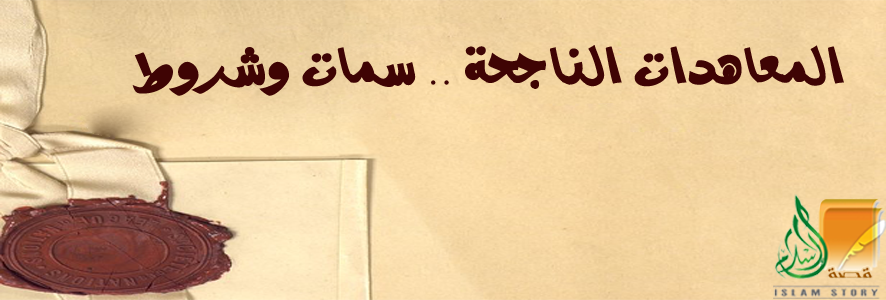 المعاهدات الناجحة .. سمات وشروط
قصة
الإسلام
ISLAM STORY